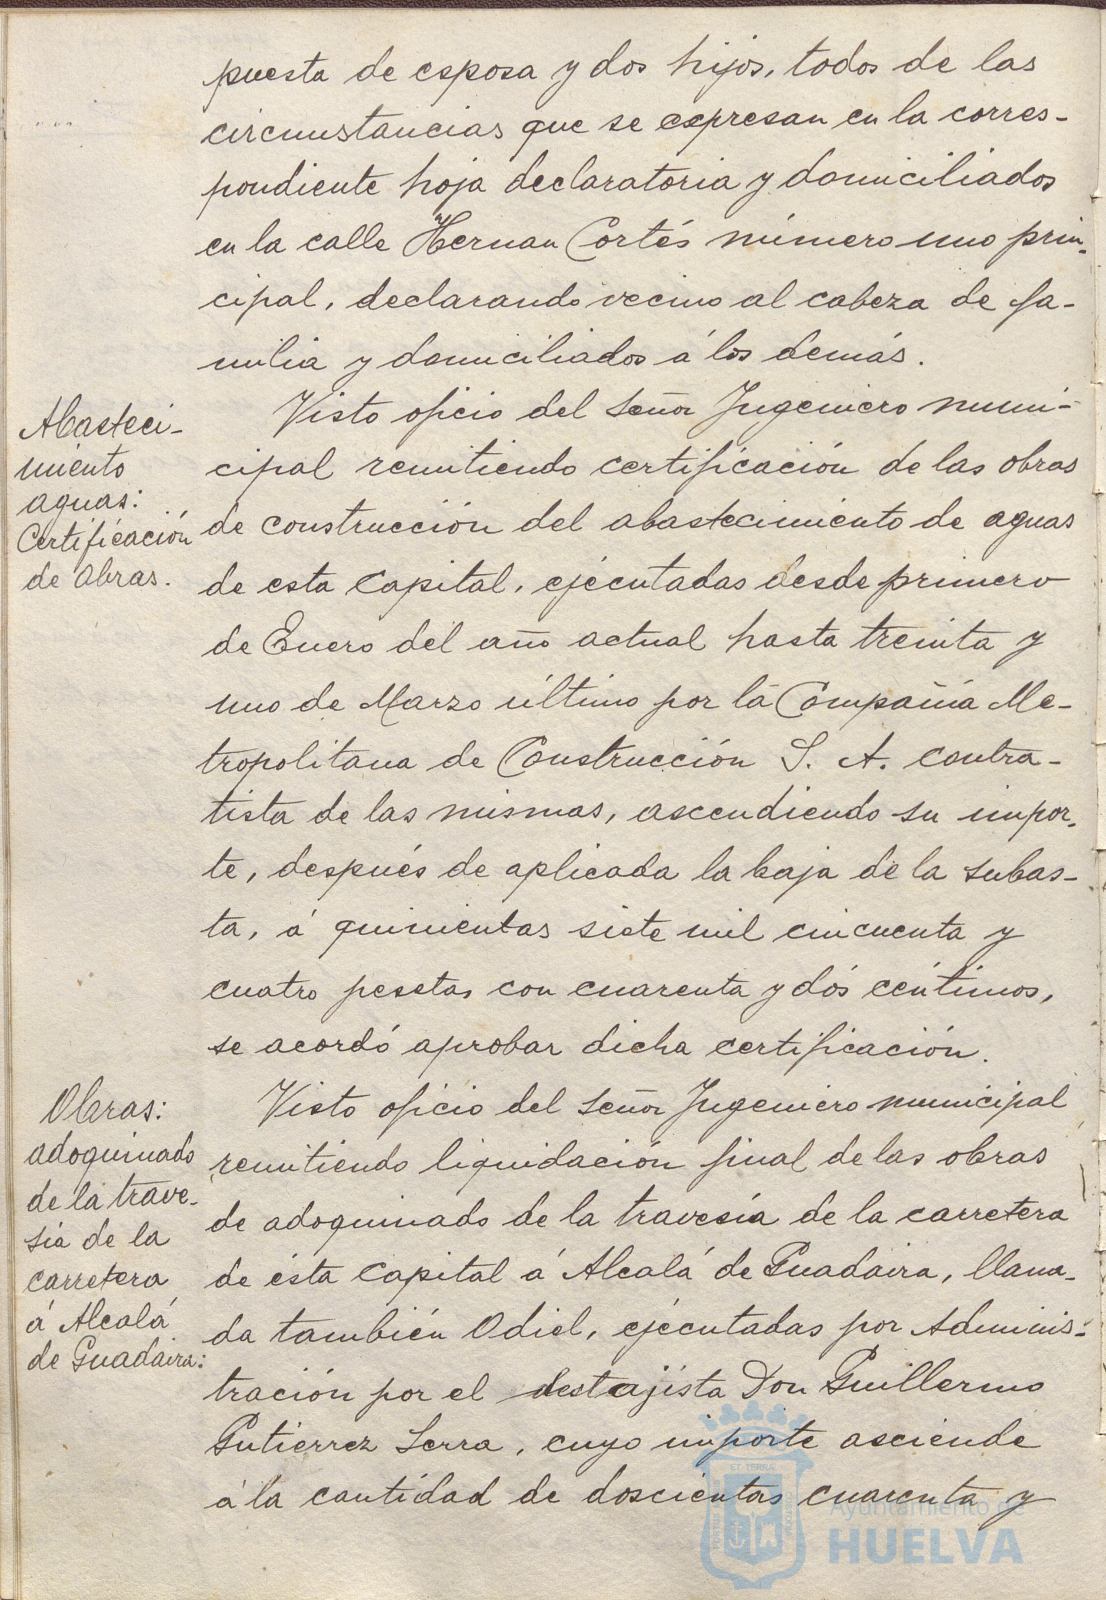 puesta de esposa y dos hijos, todos de las
circunstancias que se expresan en la corres-
pondiente hoja declaratoria y domiciliados
en la calle Hernan Cortés número uno prin-
cipal, declarando vecino al cabeza de fa-
milia y domiciliados á los demás.
Abasteci-
miento
aguas:
Certificación
de obras.
Visto oficio del Señor Ingeniero muni-
cipal remitiendo certificación de las obras
de construcción del abastecimiento de aguas
de esta Capital, ejecutadas desde primero
de Enero del año actual hasta treinta y
uno de Marzo último por la Compañía Me-
tropolitana de Construcción S. A. contra-
tista de las mismas, ascendiendo su impor-
te, después de aplicada la baja de la subas-
ta, á quinientas siete mil cincuenta y
cuatro pesetas con cuarenta y dós céntimos,
se acordó aprobar dicha certificación.
Obras:
adoquinado
de la trave-
sia de la
carretera
á Alcalá
de Guadaira:
Visto oficio del Señor Ingeniero municipal
remitiendo liquidación final de las obras
de adoquinado de la travesía de la carretera
de ésta Capital á Alcalá de Guadaira, llama-
da también Odiel, ejecutadas por Adminis-
tración por el destajista Don Guillermo
Gutierrez Serra, cuyo importe asciende
á la cantidad de doscientas cuarenta y
Ayuntamiento de
HUELVA